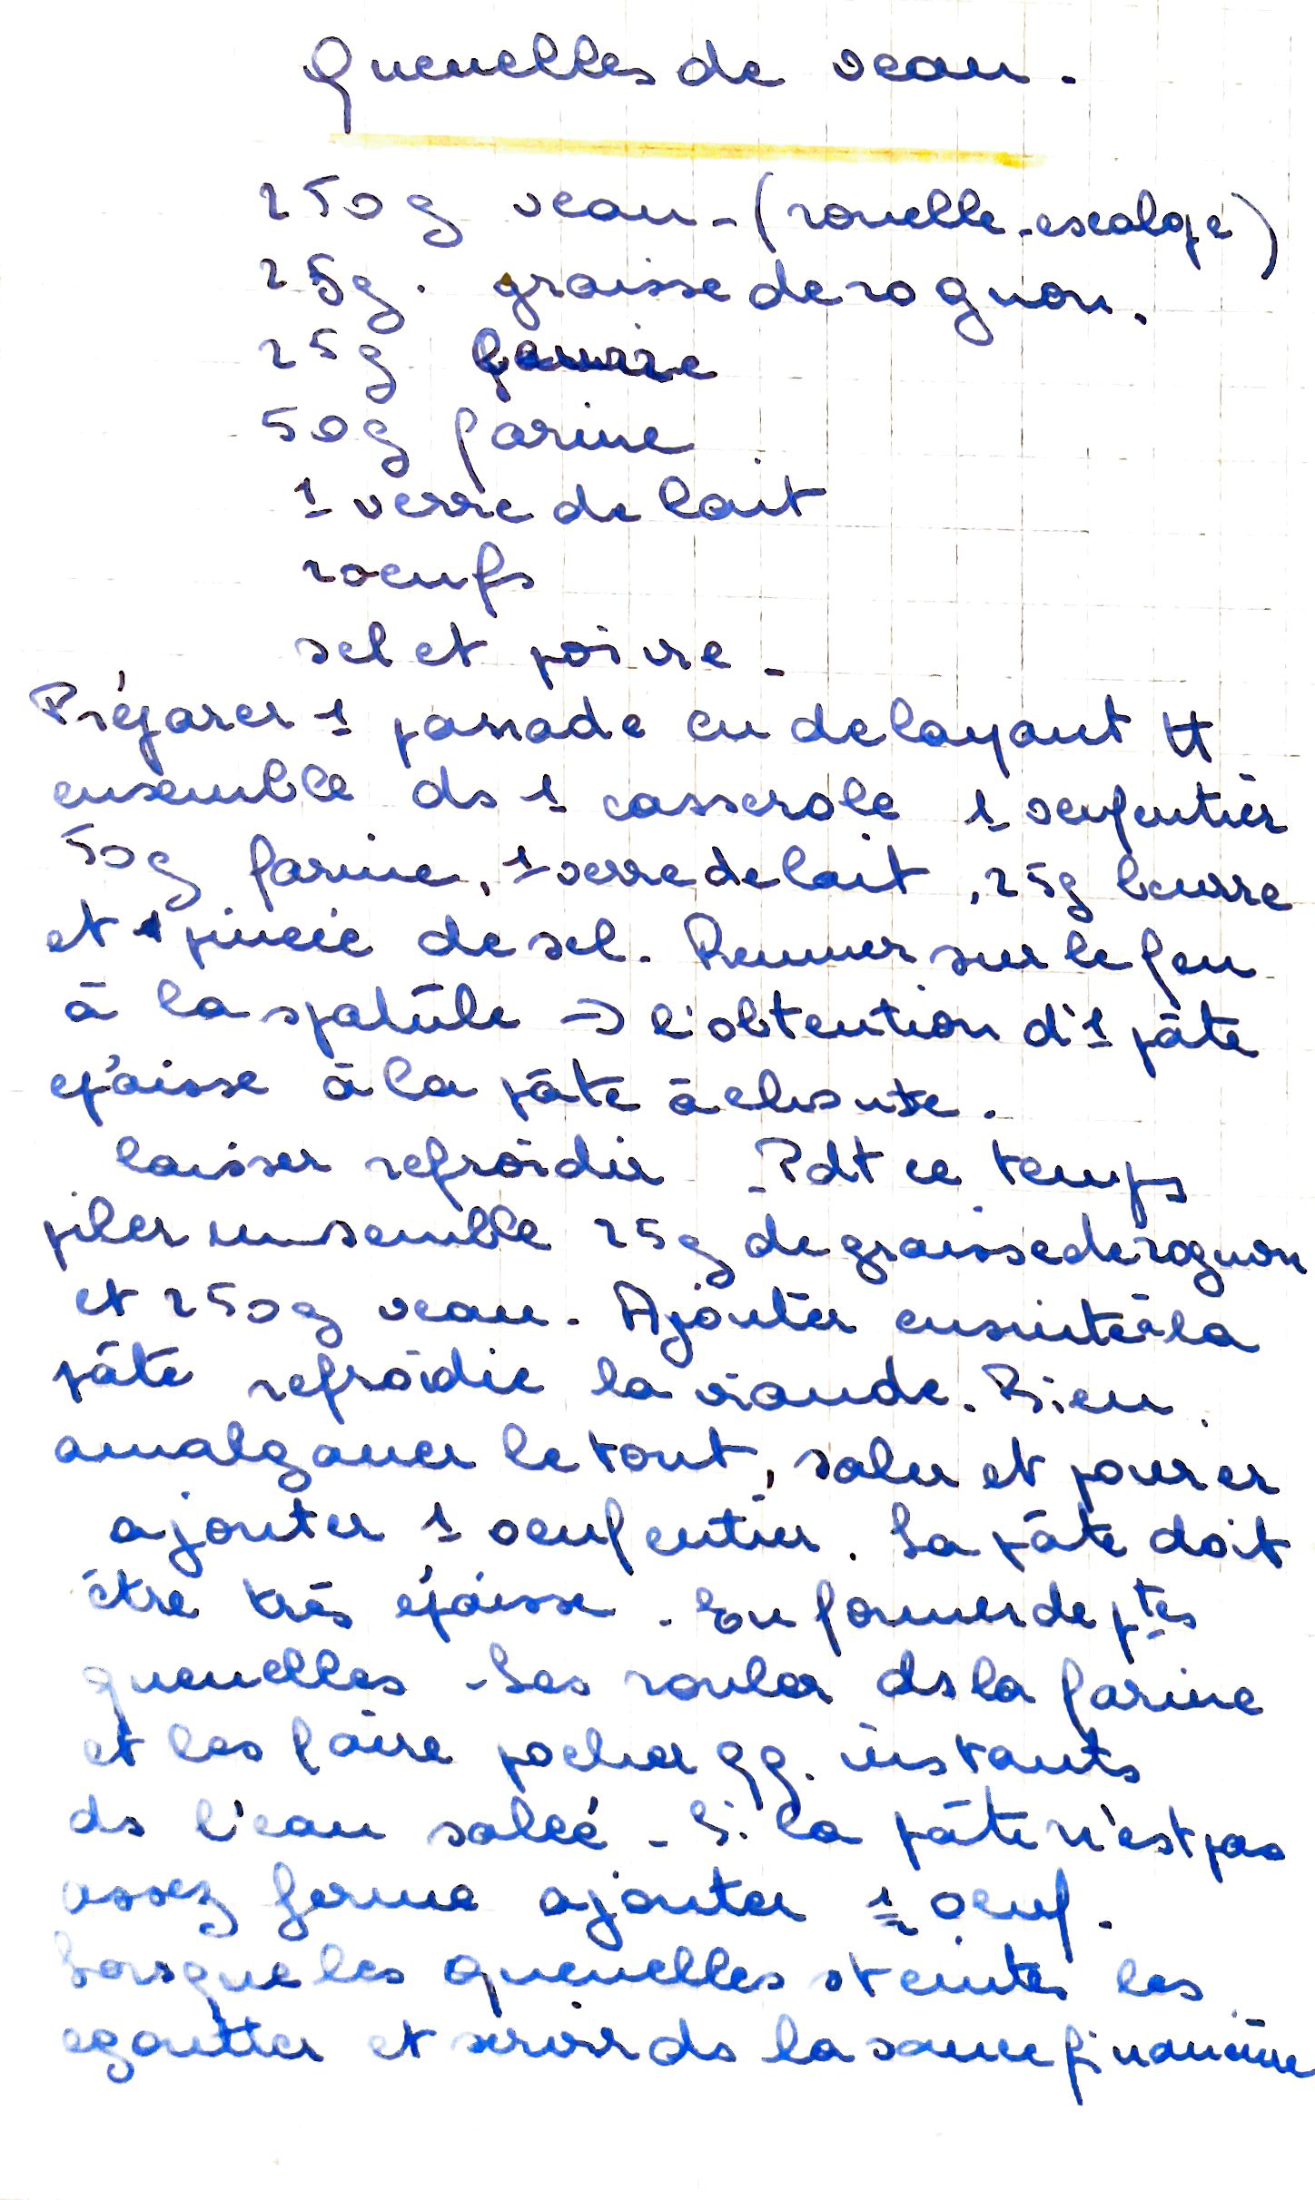 Quenelles de veau.
250g veau - (rouelle - escalope)
25g. graisse de rognon.
25g beurre
50g farine
1 verre de lait
2 oeufs
sel et poivre -
Préparer 1 panade en delayant tt
ensemble ds 1 casserole 1 oeuf entier
50g farine, 1 verre de lait, 25g beurre
et 1 pincée de sel. Remuer sur le feu
à la spatule → l'obtention d'1 pâte
épaisse à la pâte à choux.
laisser refroidir - Pdt ce temps
piler ensemble 25g de graisse de rognon
et 250g veau. Ajouter ensuite à la
pâte refroidie la viande. Bien
amalgamer le tout, saler et poivrer
ajouter 1 oeuf entier. La pâte doit
être très épaisse. En former de ptes
quenelles - Les rouler ds la farine
et les faire pocher qq. instants
ds l'eau salée - Si la pâte n'est pas
assez ferme ajouter 1 oeuf.
Lorsque les quenelles st cuites les
egoutter et servir ds la sauce financière